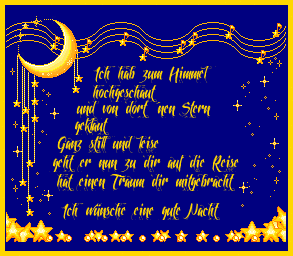 Ich hab zum Himmel
hochgeschaut
und von dort nen Stern
geklaut
Ganz still und leise
geht er nun zu dir auf die Reise
hat einen Traum dir mitgebracht
Ich wünsche eine gute Nacht